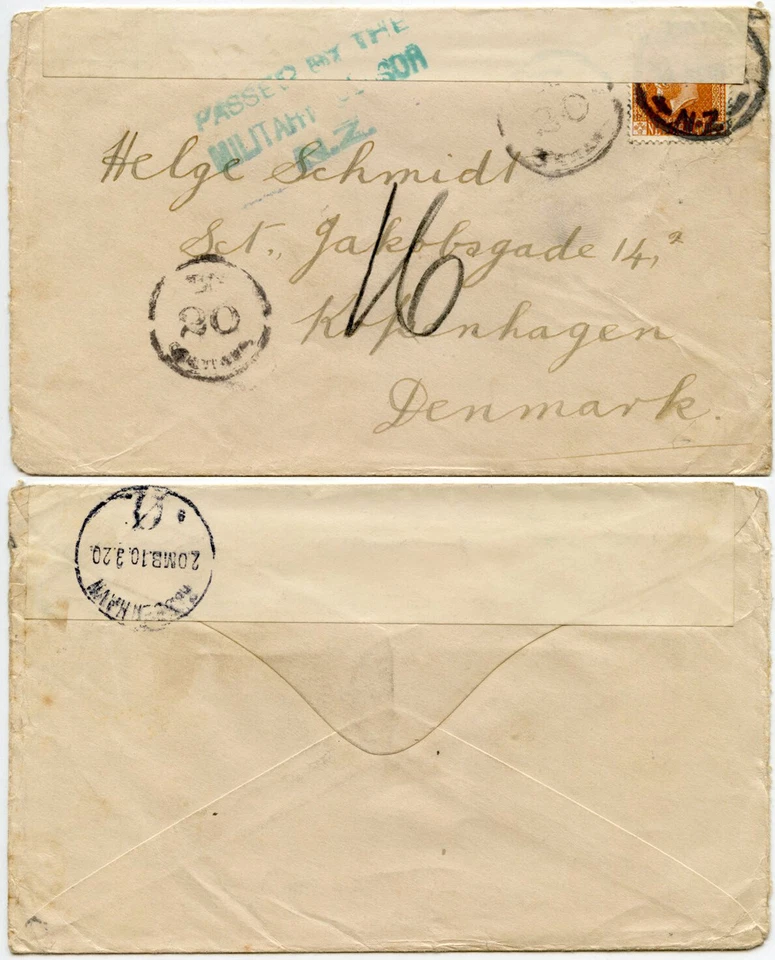 PASSED BY THE
MILITARY CENSOR
N.Z.
20
N.Z.
Helge Schmidt
Sct. Jakobsgade 14,²
16
Kopenhagen
Denmark.
20
KJØBENHAVN
20MB.10.3.20.
Ø.